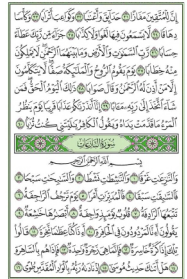 إِنَّ لِلْمُتَّقِينَ مَفَازًا ۝ حَدَائِقَ وَأَعْنَابًا ۝ وَكَوَاعِبَ أَتْرَابًا ۝ وَكَأْسًا
دِهَاقًا ۝ لَا يَسْمَعُونَ فِيهَا لَغْوًا وَلَا كِذَّابًا ۝ جَزَاءً مِنْ رَبِّكَ عَطَاءً
حِسَابًا ۝ رَبِّ السَّمَاوَاتِ وَالْأَرْضِ وَمَا بَيْنَهُمَا الرَّحْمَنِ لَا يَمْلِكُونَ
مِنْهُ خِطَابًا ۝ يَوْمَ يَقُومُ الرُّوحُ وَالْمَلَائِكَةُ صَفًّا لَا يَتَكَلَّمُونَ
إِلَّا مَنْ أَذِنَ لَهُ الرَّحْمَنُ وَقَالَ صَوَابًا ۝ ذَلِكَ الْيَوْمُ الْحَقُّ فَمَنْ
شَاءَ اتَّخَذَ إِلَى رَبِّهِ مَآبًا ۝ إِنَّا أَنْذَرْنَاكُمْ عَذَابًا قَرِيبًا يَوْمَ يَنْظُرُ
الْمَرْءُ مَا قَدَّمَتْ يَدَاهُ وَيَقُولُ الْكَافِرُ يَا لَيْتَنِي كُنْتُ تُرَابًا ۝
سُورَةُ النَّازِعَاتِ
بِسْمِ اللَّهِ الرَّحْمَنِ الرَّحِيمِ
وَالنَّازِعَاتِ غَرْقًا ۝ وَالنَّاشِطَاتِ نَشْطًا ۝ وَالسَّابِحَاتِ سَبْحًا ۝
فَالسَّابِقَاتِ سَبْقًا ۝ فَالْمُدَبِّرَاتِ أَمْرًا ۝ يَوْمَ تَرْجُفُ الرَّاجِفَةُ ۝
تَتْبَعُهَا الرَّادِفَةُ ۝ قُلُوبٌ يَوْمَئِذٍ وَاجِفَةٌ ۝ أَبْصَارُهَا خَاشِعَةٌ ۝
يَقُولُونَ أَإِنَّا لَمَرْدُودُونَ فِي الْحَافِرَةِ ۝ أَإِذَا كُنَّا عِظَامًا نَخِرَةً ۝
قَالُوا تِلْكَ إِذًا كَرَّةٌ خَاسِرَةٌ ۝ فَإِنَّمَا هِيَ زَجْرَةٌ وَاحِدَةٌ ۝ فَإِذَا هُمْ بِالسَّاهِرَةِ
۝ هَلْ أَتَاكَ حَدِيثُ مُوسَى ۝ إِذْ نَادَاهُ رَبُّهُ بِالْوَادِ الْمُقَدَّسِ طُوًى ۝